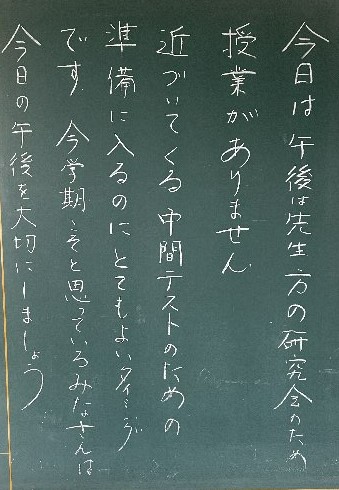 今日は午後は先生方の研究会のため
授業がありません
近づいてくる中間テストのための
準備に入るのにとてもよいタイミング
です 今学期こそと思っているみなさんは
今日の午後を大切にしましょう